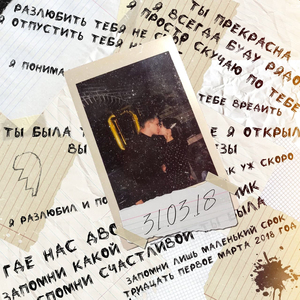 РАЗЛЮБИТЬ ТЕБЯ НЕ
ОТПУСТИТЬ ТЕБЯ
ТЫ ПРЕКРАСНА
Я ВСЕГДА БУДУ РЯДО
ПРОСТО СКУЧАЮ ПО ТЕБЕ
Я ПОНИМА
ТЕБЕ ВРЕДИТЬ
ТЫ БЫЛА Т
Я ОТКРЫЛ
ВЫ
ЗЫ
УЖ СКОРО
Я РАЗЛЮБИЛ И ПО
31.03.18
ГДЕ НАС ДВО
НИК
ЗАПОМНИ КАКОЙ
ЫЛА
СПОМНИ СЧАСТЛИВОЙ
ЗАПОМНИ ЛИШЬ МАЛЕНЬКИЙ СРОК
ТРИДЦАТЬ ПЕРВОЕ МАРТА 2018 ГОД